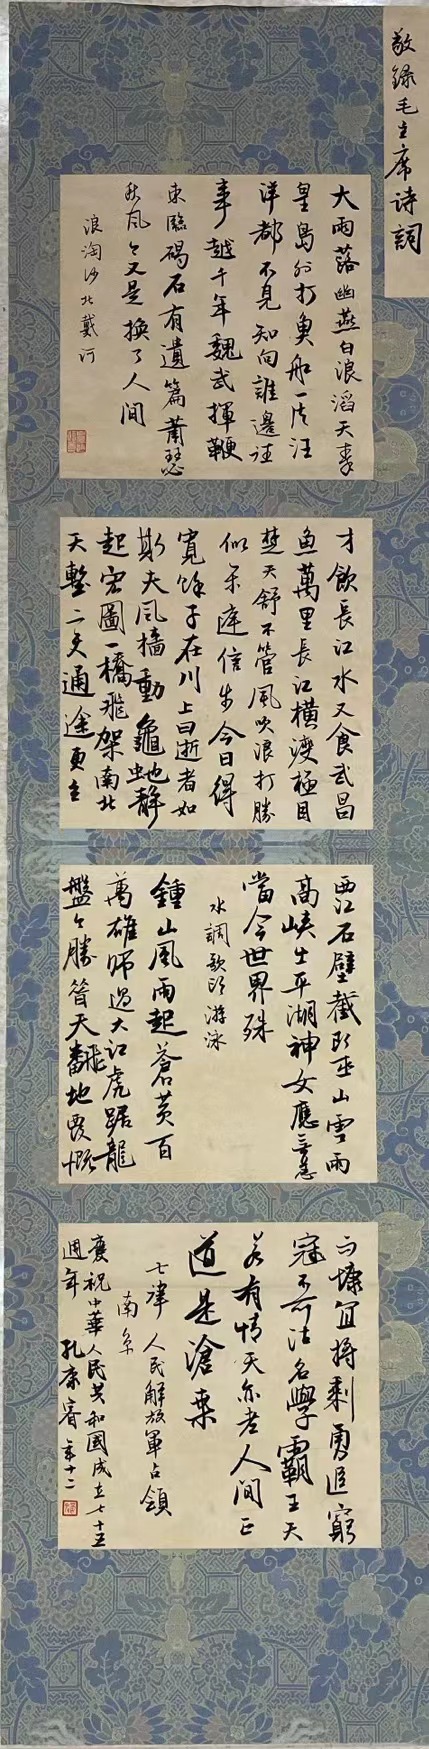 敬録毛主席诗詞
大雨落幽燕白浪滔天秦
皇島外打魚船一片汪
洋都不見知向誰邊往
事越千年魏武揮鞭
東臨碣石有遺篇蕭瑟
秋風今又是換了人間
浪淘沙北戴河
才飲長江水又食武昌
魚萬里長江橫渡極目
楚天舒不管風吹浪打勝
似閑庭信步今日得
寬餘子在川上曰逝者如
斯夫風檣動龜蛇靜
起宏圖一橋飛架南北
天塹变通途更立
西江石壁截断巫山雲雨
高峡出平湖神女應無恙
當今世界殊
水調歌頭游泳
鍾山風雨起蒼黄百
萬雄師過大江虎踞龍
盤今勝昔天翻地覆慨
而慷宜將剩勇追窮
寇不可沽名學霸王天
若有情天亦老人間正
道是滄桑
七律 人民解放軍占領
南京
慶祝中華人民共和國成立七十五
週年 孔康睿 年十二